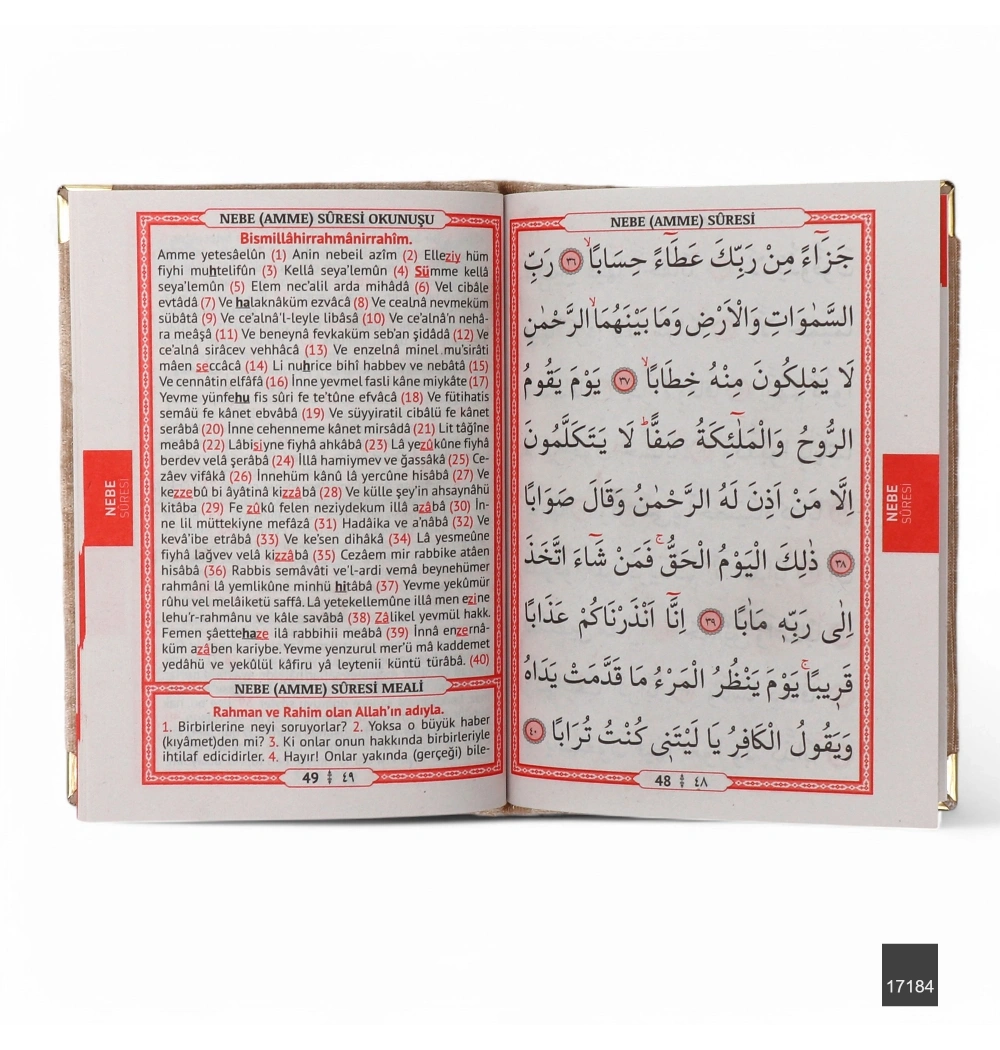 NEBE (AMME) SÛRESİ
جَزَٓاءً مِنْ رَبِّكَ عَطَٓاءً حِسَابًاۙ ﴿٣٦﴾ رَبِّ
السَّمٰوَاتِ وَالْاَرْضِ وَمَا بَيْنَهُمَاۙ الرَّحْمٰنِ
لَا يَمْلِكُونَ مِنْهُ خِطَابًاۙ ﴿٣٧﴾ يَوْمَ يَقُومُ
الرُّوحُ وَالْمَلٰٓئِكَةُ صَفًّاۜ لَا يَتَكَلَّمُونَ
اِلَّا مَنْ اَذِنَ لَهُ الرَّحْمٰنُ وَقَالَ صَوَابًا
﴿٣٨﴾ ذٰلِكَ الْيَوْمُ الْحَقُّۚ فَمَنْ شَٓاءَ اتَّخَذَ
اِلٰى رَبِّهٖ مَاٰبًا ﴿٣٩﴾ اِنَّٓا اَنْذَرْنَاكُمْ عَذَابًا
قَرٖيبًاۚ يَوْمَ يَنْظُرُ الْمَرْءُ مَا قَدَّمَتْ يَدَاهُ
وَيَقُولُ الْكَافِرُ يَا لَيْتَنٖى كُنْتُ تُرَابًا ﴿٤٠﴾
48 ٤٨
NEBE
SÛRESİ
NEBE (AMME) SÛRESİ OKUNUŞU
Bismillâhirrahmânirrahîm.
Amme yetesâelûn (1) Anin nebeil azîm (2) Elleziy hüm
fiyhi muhtelifûn (3) Kellâ seya'lemûn (4) Sümme kellâ
seya'lemûn (5) Elem nec'alil arda mihâdâ (6) Vel cibâle
evtâdâ (7) Ve halaknâküm ezvâcâ (8) Ve cealnâ nevmeküm
sübâtâ (9) Ve ce'alnâ'l-leyle libâsâ (10) Ve ce'alnâ'n nehâ-
ra meâşâ (11) Ve beneynâ fevkaküm seb'an şidâdâ (12) Ve
ce'alnâ sirâcev vehhâcâ (13) Ve enzelnâ minel mu'sirâti
mâen seccâcâ (14) Li nuhrice bihî habbev ve nebâtâ (15)
Ve cennâtin elfâfâ (16) İnne yevmel fasli kâne miykâte (17)
Yevme yünfehu fis sûri fe te'tûne efvâcâ (18) Ve fütihatis
semâü fe kânet ebvâbâ (19) Ve süyyiratil cibâlü fe kânet
serâbâ (20) İnne cehenneme kânet mirsâdâ (21) Lit tâğîne
meâbâ (22) Lâbisiyne fiyhâ ahkâbâ (23) Lâ yezûkûne fiyhâ
berdev velâ şerâbâ (24) İllâ hamiymev ve ğassâkâ (25) Ce-
zâev vifâkâ (26) İnnehüm kânû lâ yercûne hisâbâ (27) Ve
kezzebû bi âyâtinâ kizzâbâ (28) Ve külle şey'in ahsaynâhü
kitâba (29) Fe zûkû felen neziydekum illâ azâbâ (30) İn-
ne lil müttekiyne mefâzâ (31) Hadâika ve a'nâbâ (32) Ve
kevâ'ibe etrâbâ (33) Ve ke'sen dihâkâ (34) Lâ yesmeûne
fiyhâ lağvev velâ kizzâbâ (35) Cezâem mir rabbike atâen
hisâbâ (36) Rabbis semâvâti ve'l-ardi vemâ beynehümer
rahmâni lâ yemlikûne minhü hitâbâ (37) Yevme yekûmür
rûhu vel melâiketü saffâ. Lâ yetekellemûne illâ men ezine
lehu'r-rahmânu ve kâle savâbâ (38) Zâlikel yevmül hakk.
Femen şâettehaze ilâ rabbihii meâbâ (39) İnnâ enzernâ-
küm azâben kariybe. Yevme yenzurul mer'ü mâ kaddemet
yedâhü ve yekûlül kâfiru yâ leytenii küntü türâbâ. (40)
NEBE (AMME) SÛRESİ MEALİ
Rahman ve Rahim olan Allah'ın adıyla.
1. Birbirlerine neyi soruyorlar? 2. Yoksa o büyük haber
(kıyâmet)den mi? 3. Ki onlar onun hakkında birbirleriyle
ihtilaf edicidirler. 4. Hayır! Onlar yakında (gerçeği) bile-
49 ٤٩
NEBE
SÛRESİ
17184